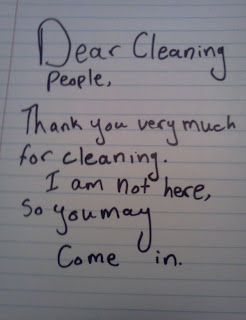 Dear Cleaning
People,
Thank you very much
for cleaning.
I am not here,
So you may
Come in.